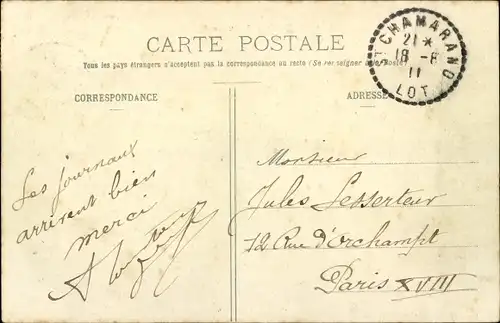 CARTE POSTALE
Tous les pays étrangers n'acceptent pas la correspondance au recto (Se renseigner à la Poste)
CORRESPONDANCE
ADRESSE
ST CHAMARAND
21 *
18 - 8
11
LOT
Les journaux
arrivent bien
merci
Monsieur
Jules Lesserteur
12 Rue d'Orchampt
Paris XVIII